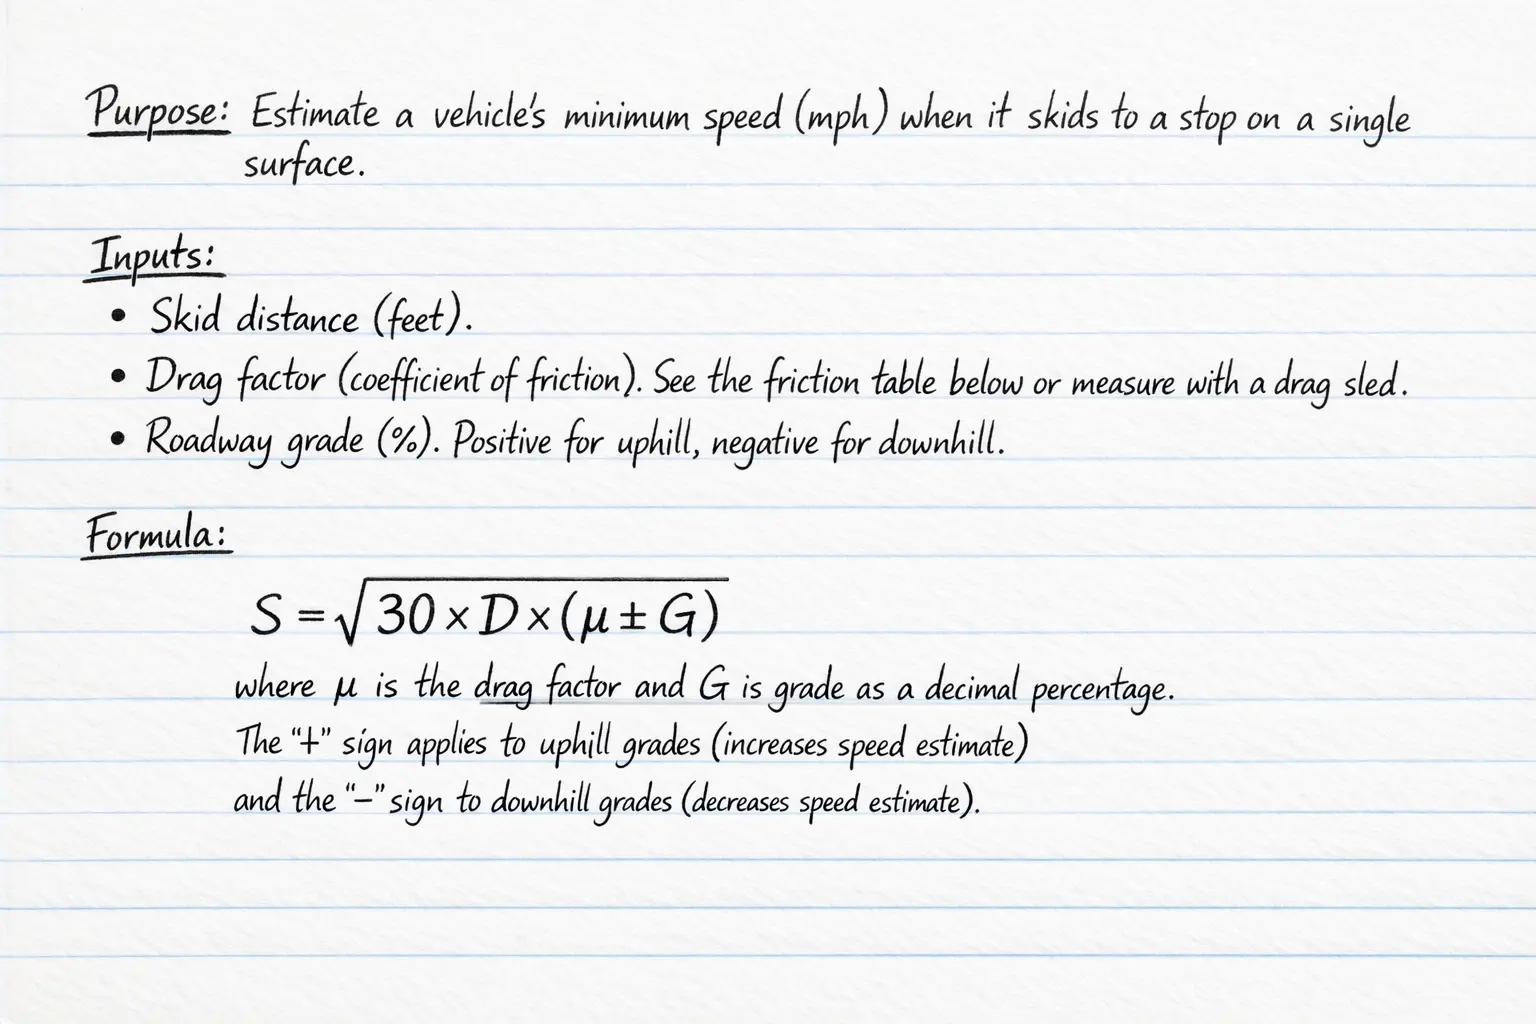 Purpose: Estimate a vehicle's minimum speed (mph) when it skids to a stop on a single
surface.
Inputs:
• Skid distance (feet).
• Drag factor (coefficient of friction). See the friction table below or measure with a drag sled.
• Roadway grade (%). Positive for uphill, negative for downhill.
Formula:
S = √30 × D × (μ ± G)
where μ is the drag factor and G is grade as a decimal percentage.
The "+" sign applies to uphill grades (increases speed estimate)
and the "–" sign to downhill grades (decreases speed estimate).